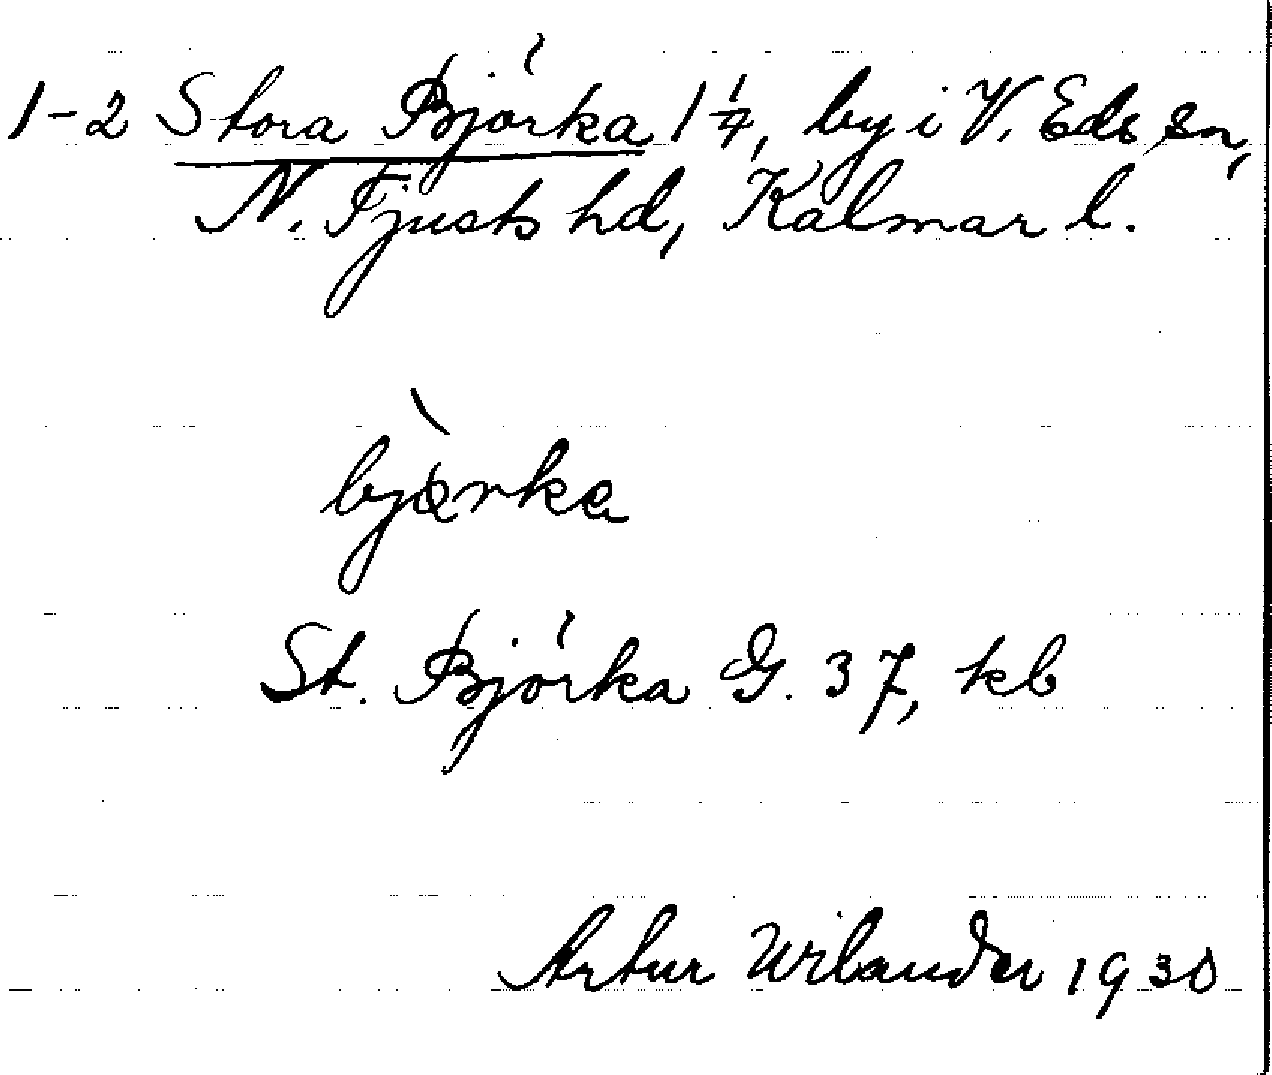 1-2 Stora Björka 1 1/4, by i V. Eds sn,
N. Tjusts hd, Kalmar l.
bjærka
St. Björka G. 37, kb
Artur Wilander 1930